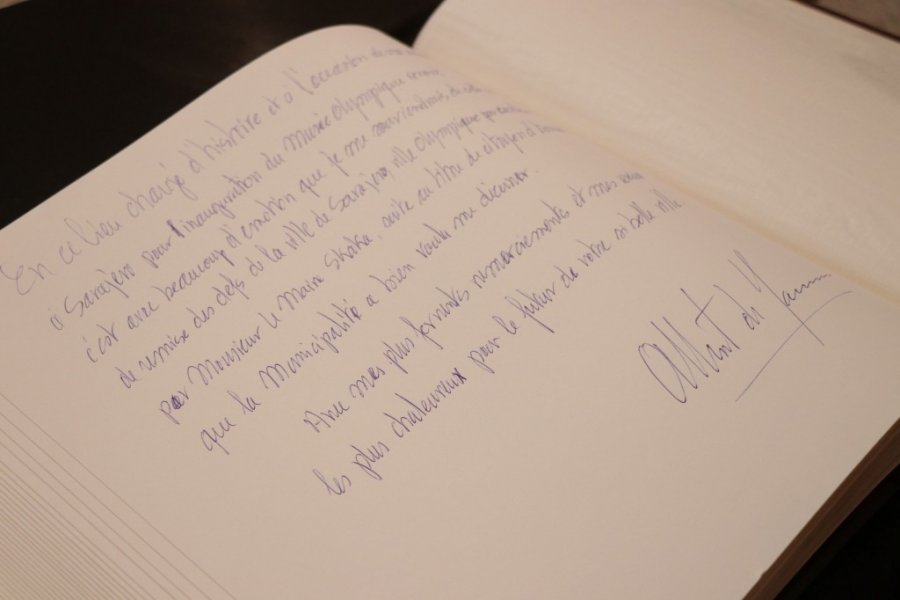 En ce lieu chargé d'histoire et à l'occasion de ma
à Sarajevo pour l'inauguration du Musée Olympique
c'est avec beaucoup d'émotion que je me souviendrai de
de remise des clefs de la ville de Sarajevo, ville Olympique
par Monsieur le Maire Skaka, suite au titre de citoyen d'
que la Municipalité a bien voulu me décerner.
Avec mes plus fervents remerciements et mes vœux
les plus chaleureux pour le futur de votre si belle ville
Albert de Monaco